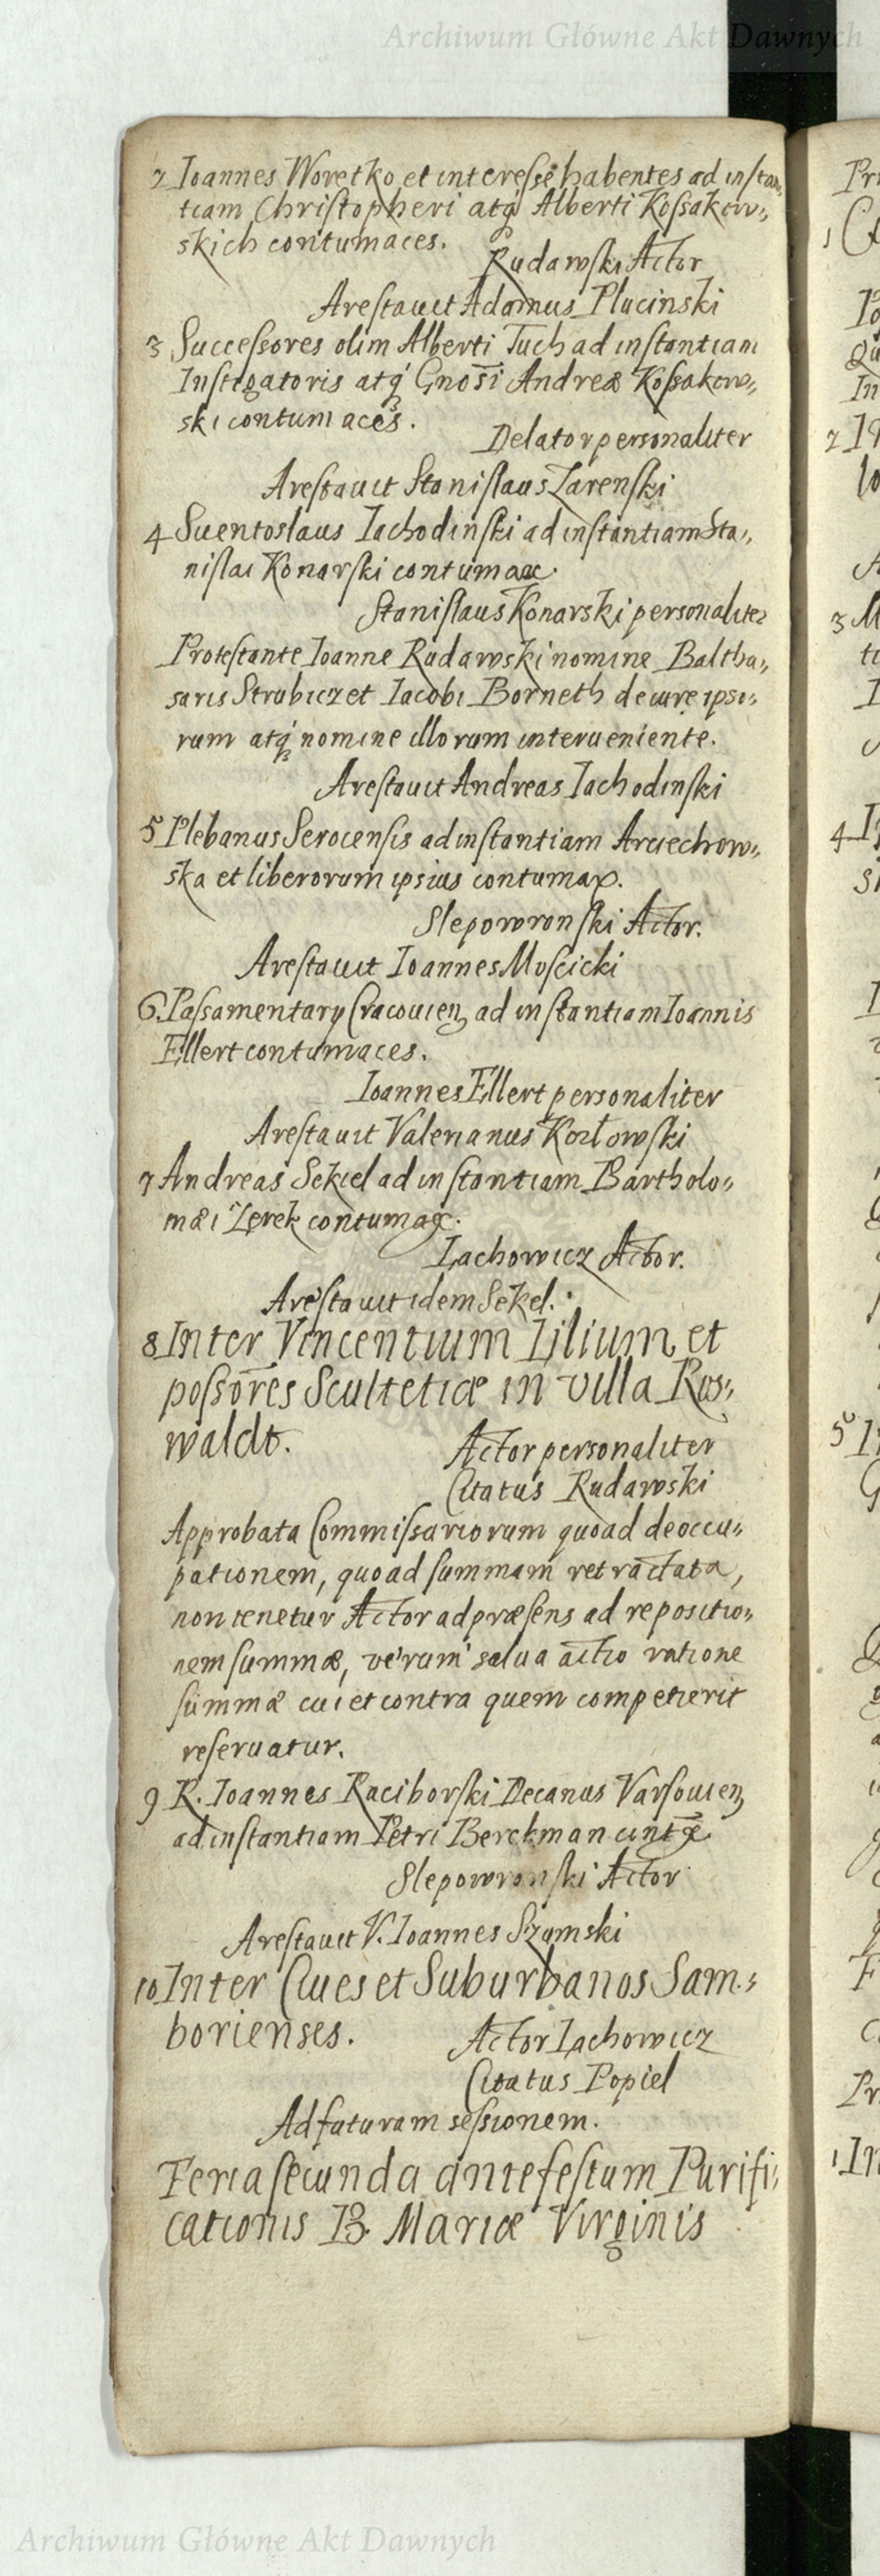 Archiwum Główne Akt Dawnych
2 Ioannes Woretko et interesse habentes ad instan„
tiam Christopheri atq́ Alberti Kossakow„
skich contumaces.
Rudawski Actor
Arestauit Adamus Plucinski
3 Successores olim Alberti Tuch ad instantiam
Instigatoris atq́ Gnosi Andreæ Kossakow„
ski contumaces.
Delator personaliter
Arestauit Stanislaus Zarenski
4 Suentoslaus Iachodinski ad instantiam Sta„
nislai Konarski contumax.
Stanislaus Konarski personaliter
Protestante Ioanne Rudawski nomine Baltha„
saris Strubicz et Iacobi Borneth de iure ipso„
rum atq́ nomine illorum interueniente.
Arestauit Andreas Iachodinski
5 Plebanus Serocensis ad instantiam Arciechow„
ska et liberorum ipsius contumax.
Slepowronski Actor.
Arestauit Ioannes Moscicki
6. Passamentary Cracouien ad instantiam Ioannis
Ellert contumaces.
Ioannes Ellert personaliter
Arestauit Valerianus Kozłowski
7 Andreas Sekiel ad instantiam Bartholo„
mæi Zerek contumax.
Lachowicz Actor.
Arestauit idem Sekel.
8 Inter Vincentium Lilium et
possores Scultetiæ in villa Ros„
waldt.
Actor personaliter
Citatus Rudawski
Approbata Commissariorum quoad deoccu„
pationem, quoad summam retractata,
non tenetur Actor ad præsens ad repositio„
nem summæ, verum salua actio ratione
summæ cui et contra quem competierit
reseruatur.
9 R. Ioannes Raciborski Decanus Varsouien
ad instantiam Petri Berckman
Slepowronski Actor
Arestauit V. Ioannes Szumski
10 Inter Ciues et Suburbanos Sam„
borienses.
Actor Lachowicz
Citatus Popiel
Ad futuram sessionem.
Feria secunda ante festum Purifi„
cationis B. Mariæ Virginis
Archiwum Główne Akt Dawnych